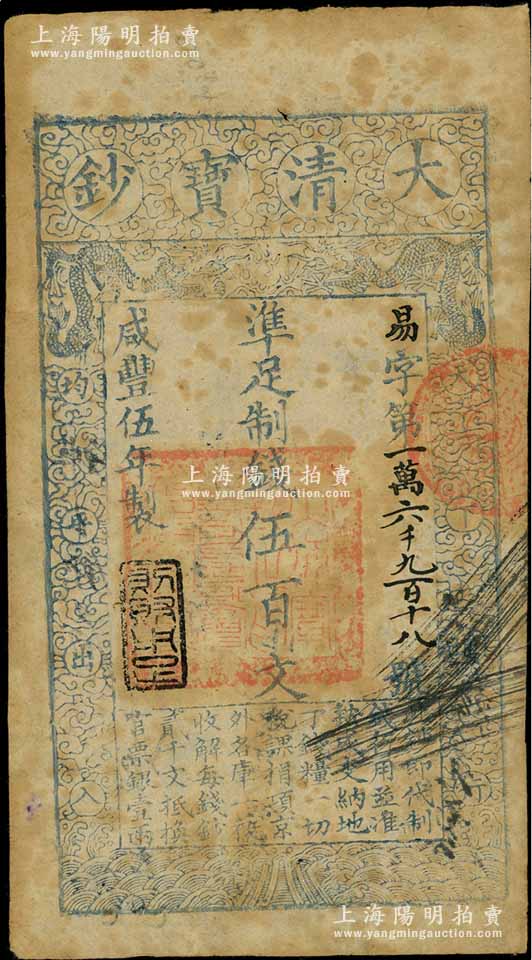 上海陽明拍賣
www.yangmingauction.com
大清寶鈔
易字第一萬六千九百十八號
準足制錢伍百文
咸豐伍年製
天
均
平
出
入
上海陽明拍賣
www.yangmingauction.com
此鈔即代制
錢行用並准
按成交納地
丁錢糧一切
稅課捐項京
外各庫一概
收解每錢鈔
貳千文抵換
官票銀壹兩
上海陽明拍賣
www.yangmingauction.com